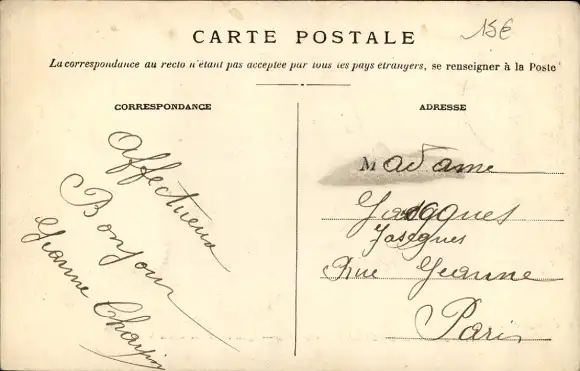 15€
CARTE POSTALE
La correspondance au recto n'étant pas acceptée par tous les pays étrangers, se renseigner à la Poste
CORRESPONDANCE
Affectueux
Bonjour
Jeanne
ADRESSE
Madame
Jacques
Rue Jeanne
Paris